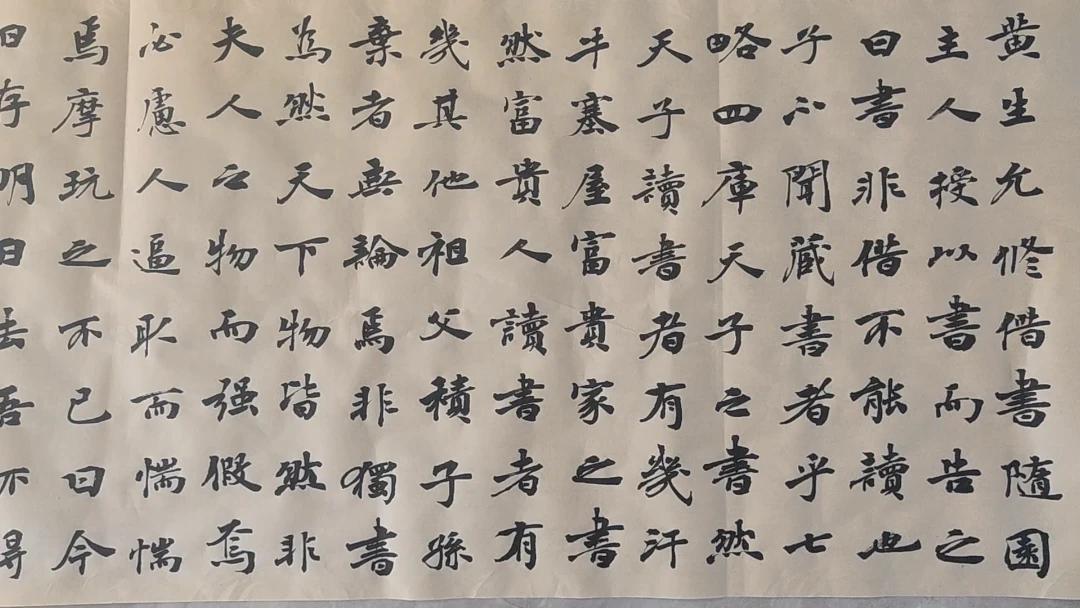 黄生允修借書隨園
主人授以書而告之
曰書非借不能讀也
子不聞藏書者乎七
略四庫天子之書然
天子讀書者有幾汗
牛塞屋富貴家之書
然富貴人讀書者有
幾其他祖父積子孫
棄者無論焉非獨書
為然天下物皆然非
夫人之物而强假焉
必慮人逼取而惴惴
焉摩玩之不已曰今
日存明日去吾不得